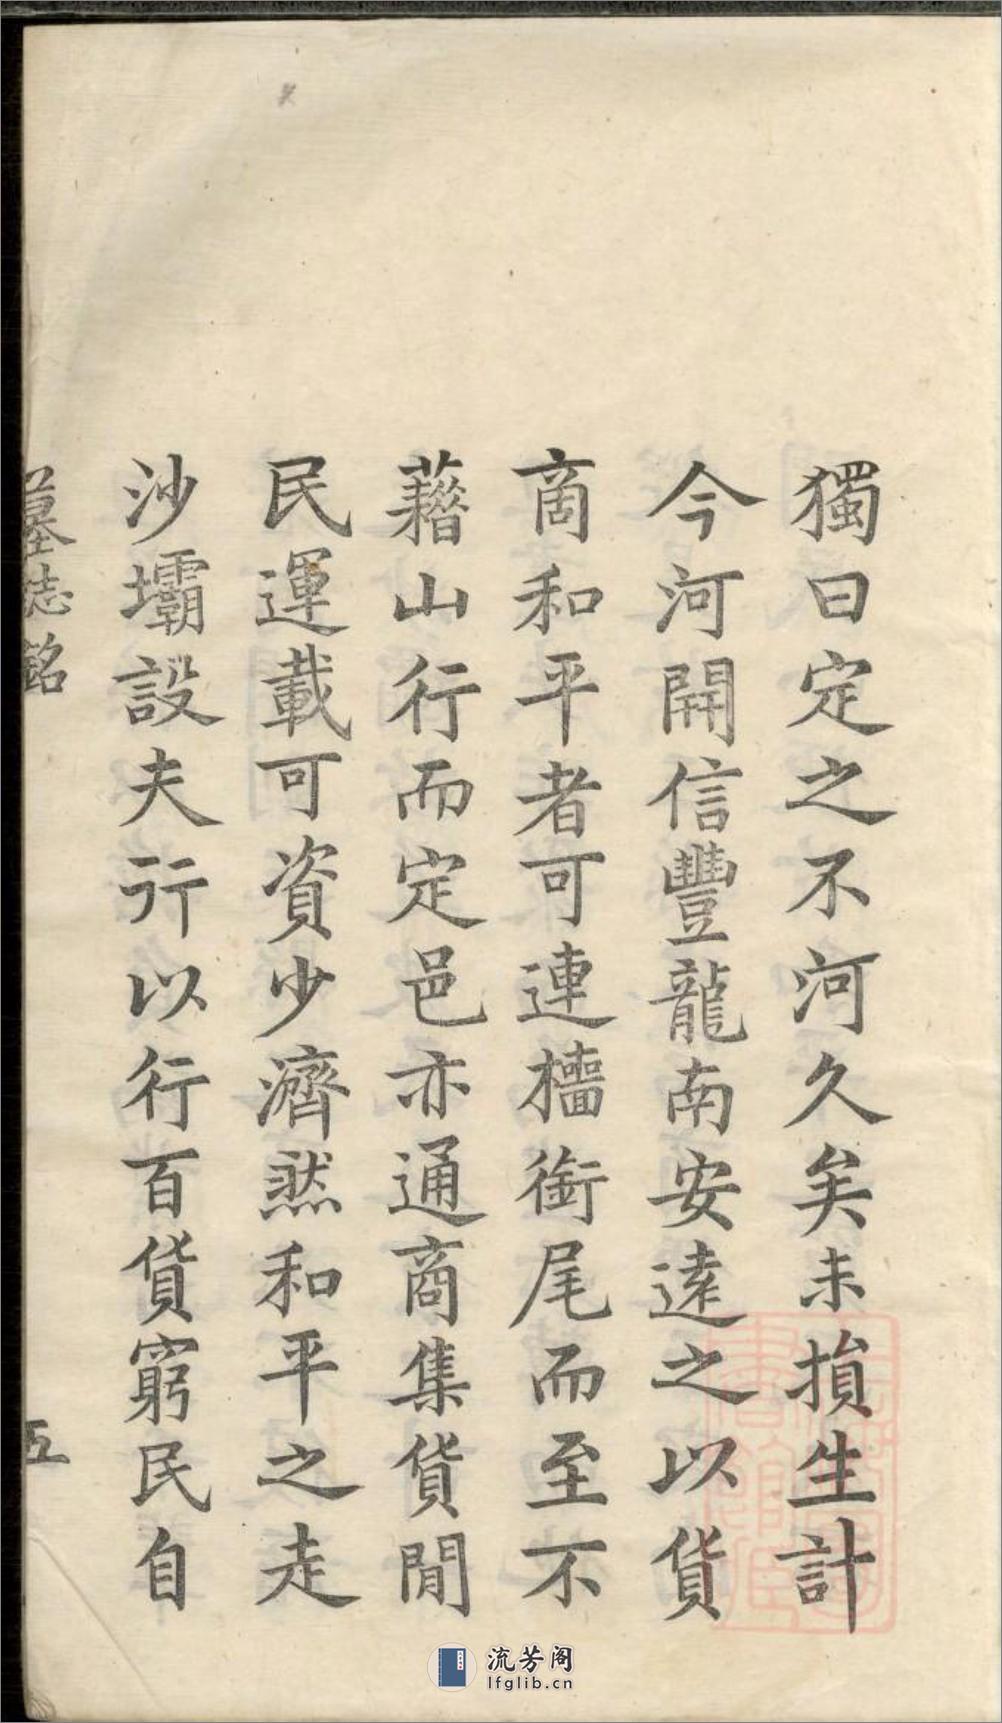 獨曰定之不河久矣未損生計
今河開信豐龍南安遠之以貨
商和平者可連檣銜尾而至不
藉山行而定邑亦通商集貨閒
民運載可資少濟然和平之走
沙壩設夫行以行百貨窮民自
墓志銘
五
流芳阁
lfglib.cn